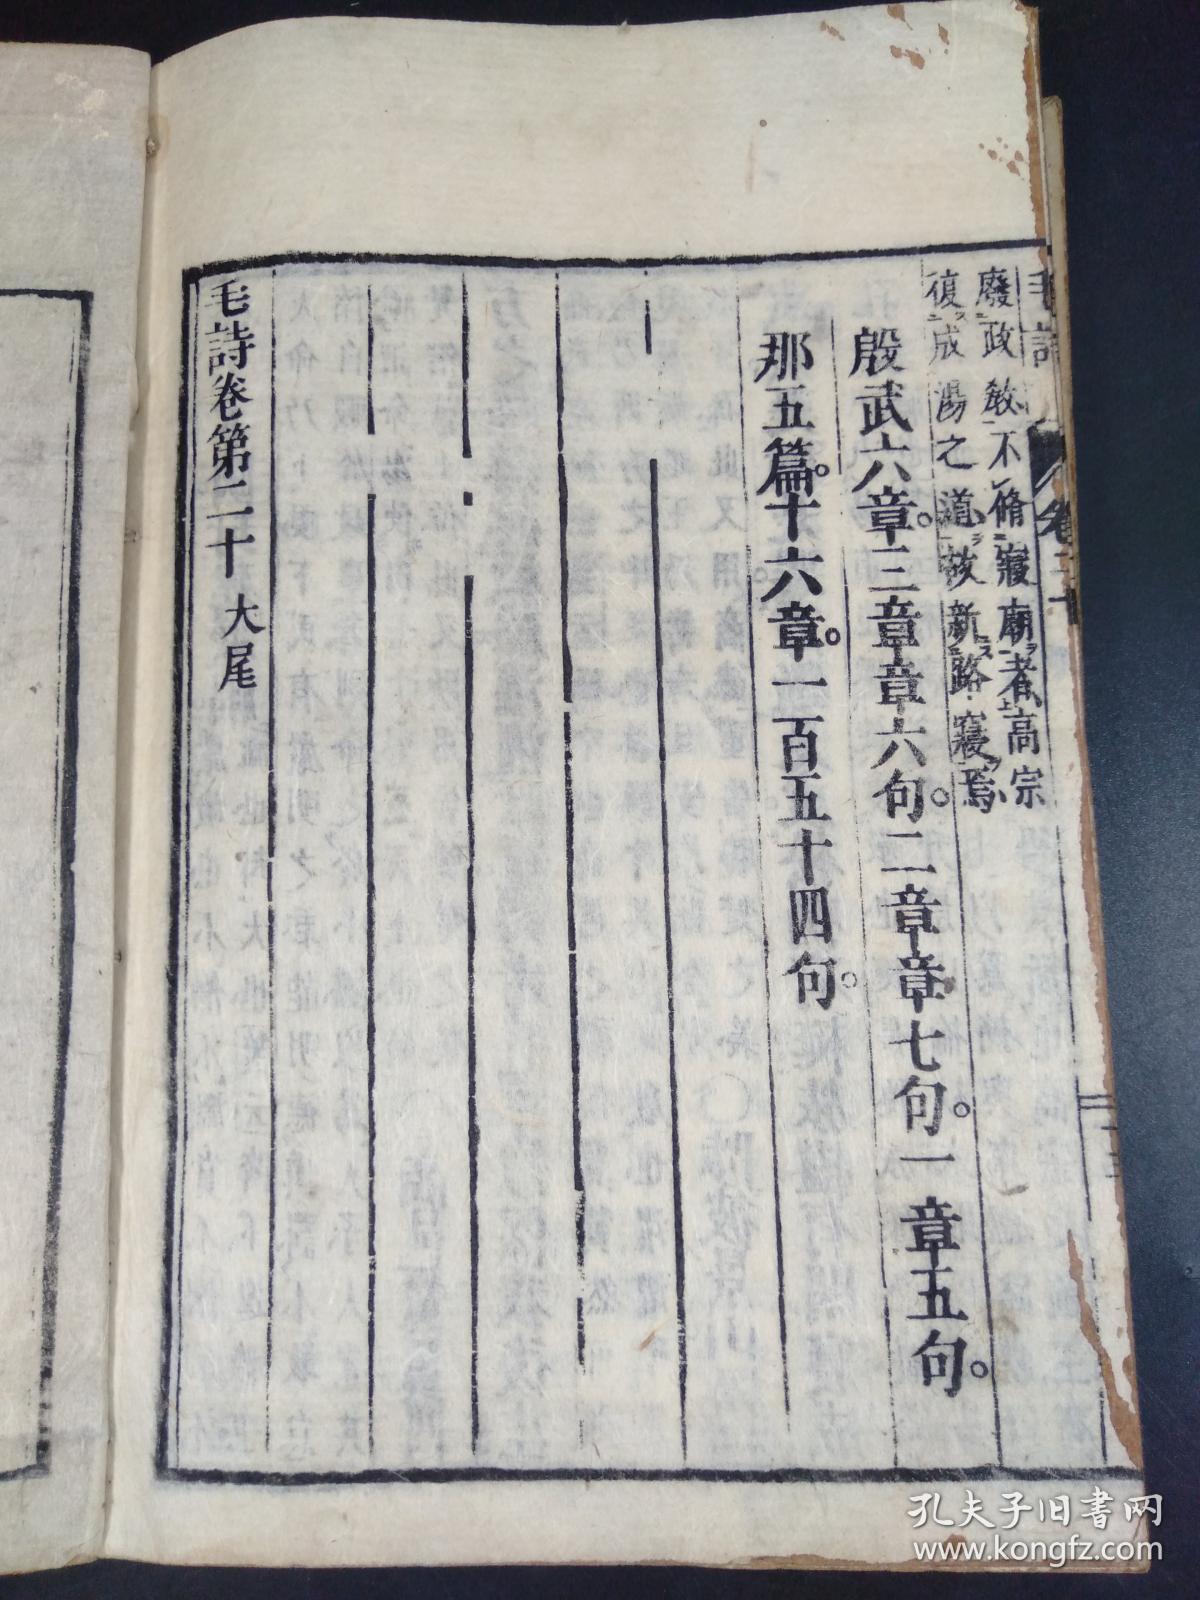 毛詩 卷二十
廢政教不脩寢廟者高宗
復成湯之道故新路寢焉
殷武六章。三章章六句。二章章七句。一章五句。
那五篇。十六章。一百五十四句。
毛詩卷第二十 大尾
孔夫子旧书网
www.kongfz.com